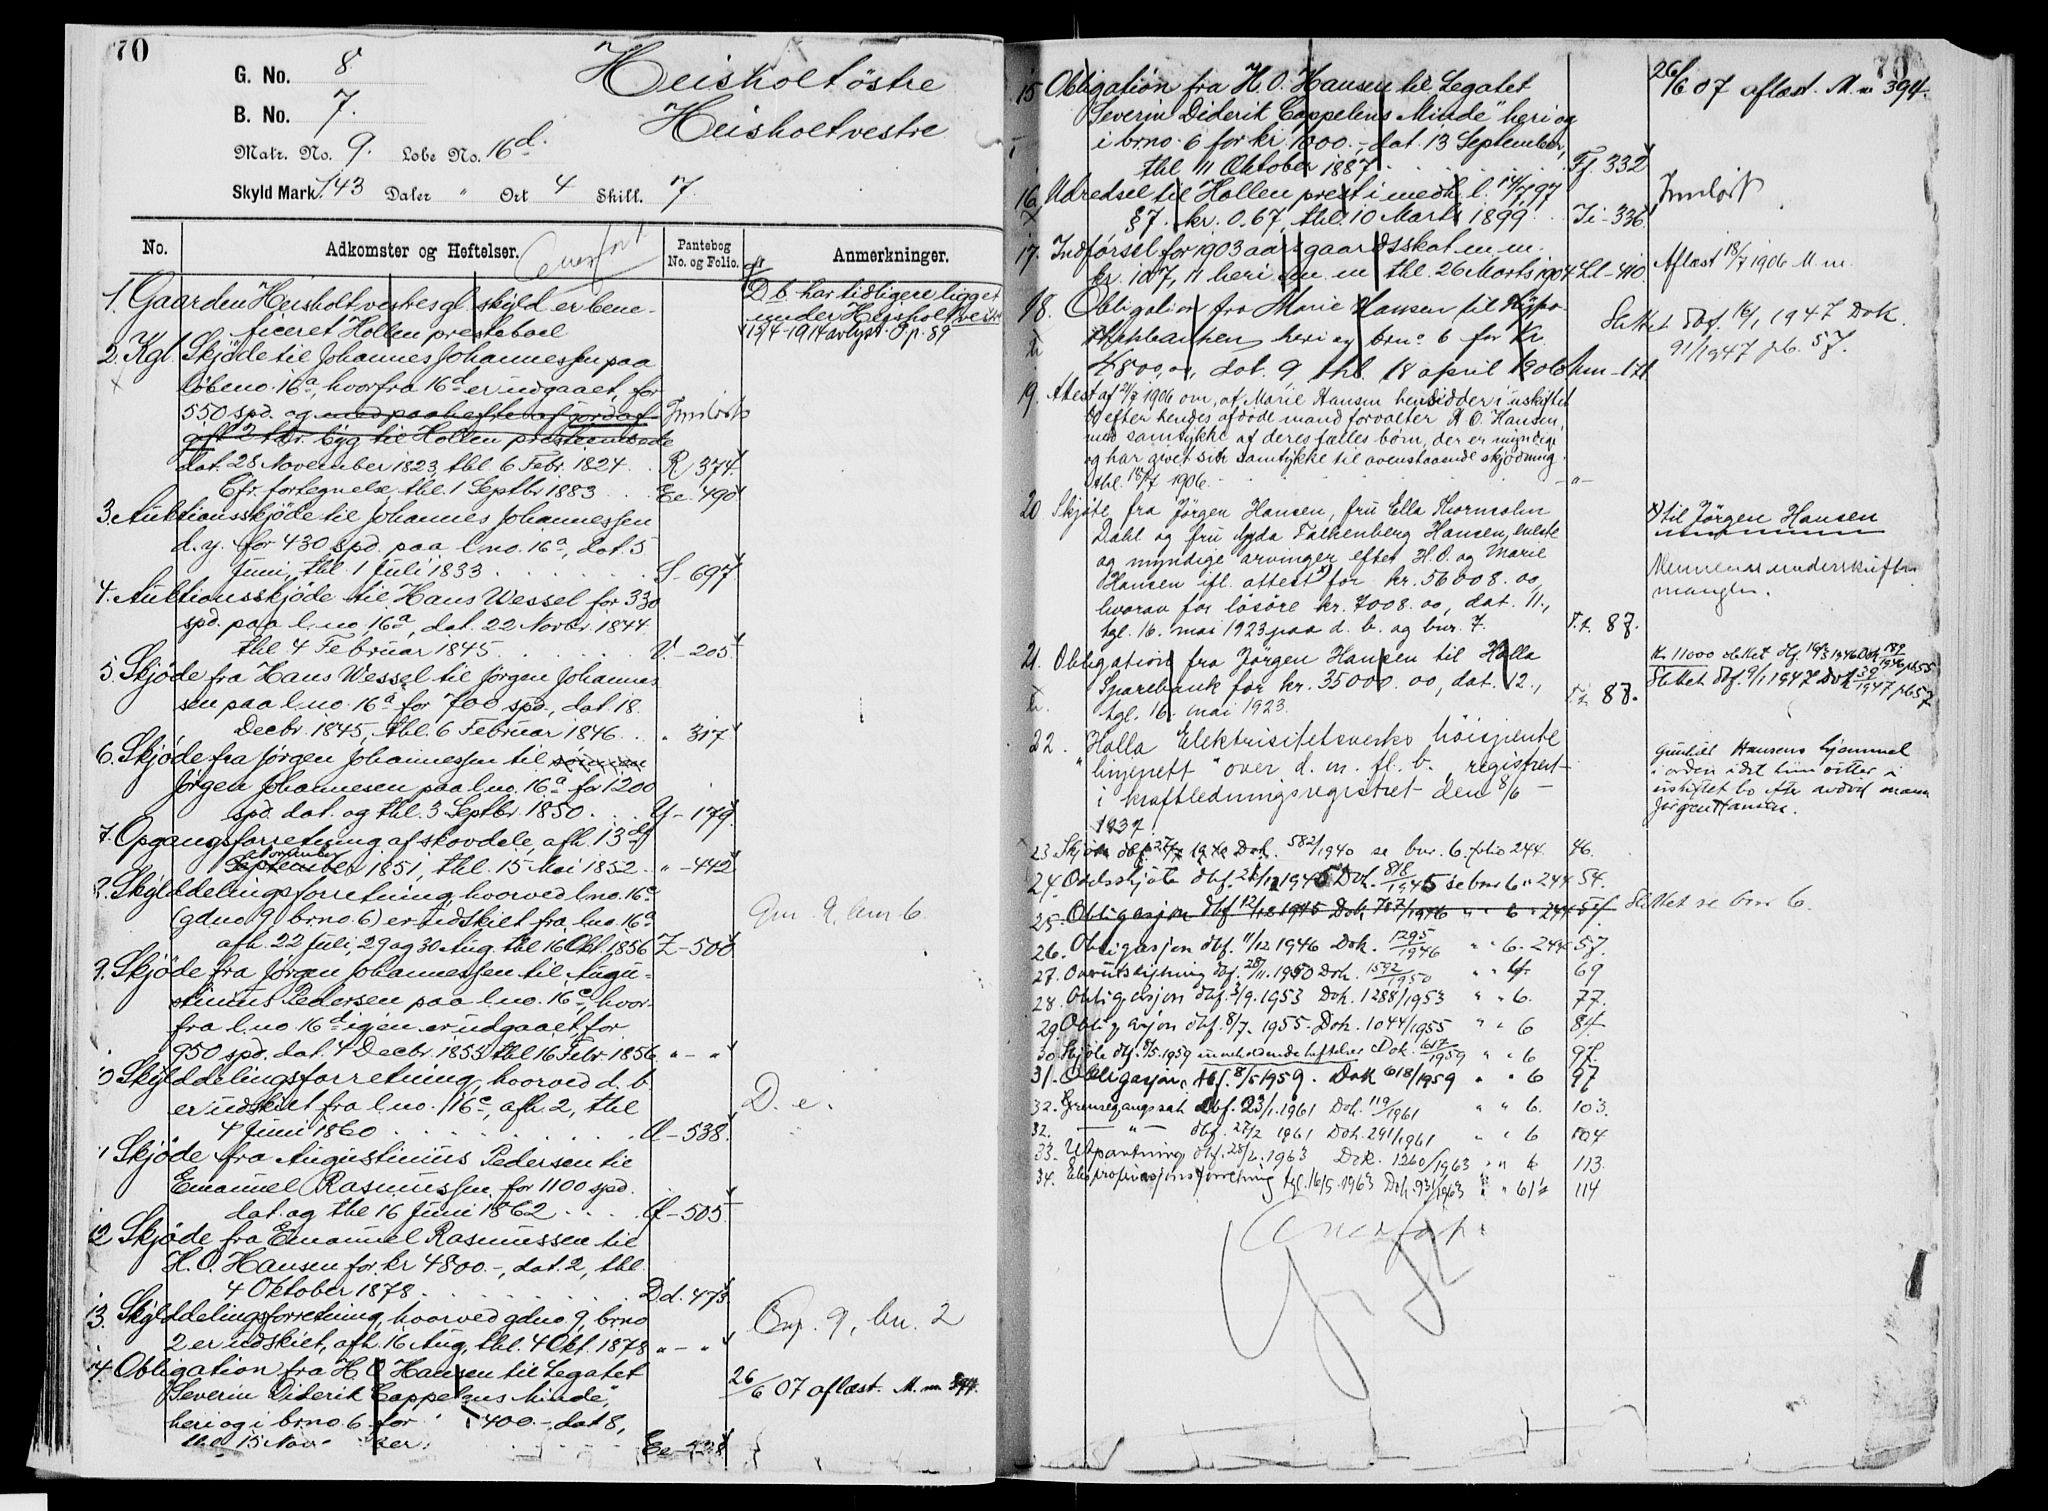 70
G. No. 8
Heisholt østre
B. No. 7.
Heisholt vestre
Matr. No. 9. Løbe No. 16d.
Skyld Mark 1.43 Daler " Ort 4 Skill. 7.
No. Adkomster og Heftelser. Pantebog No. og Folio. Anmerkninger.
1. Gaarden Heisholt vestres gl. skyld er bene-
ficeret Hollen prestebol
D. b. har tidligere ligget
under Heisholt vestre
15/4-1914 avlyst. O p. 89
2. Kgl. Skjøde til Johannes Johannessen paa
løbeno. 16a, hvorfra 16d er udgaaet, for
550 spd. og med paaheftelse af jordaf-
gift 2 tdr. byg til Hollen
Innløst
dat. 28 November 1823, thl. 6 Febr. 1824. R 374.
Cfr. fortegnelse thl. 1 Septbr 1883 Ee. 490
3. Auktionsskjøde til Johannes Johannessen
d. y. for 430 spd. paa l. no. 16a, dat. 5
Juni, thl. 1 Juli 1833 S-697
4. Auktionsskjøde til Hans Wessel for 330
spd. paa l. no. 16a, dat. 22 Novbr. 1844.
thl 4 Februar 1845 V.-205
5. Skjøde fra Hans Wessel til Jørgen Johannes
sen paa l. no. 16a for 700 spd., dat. 18.
Decbr. 1845, thl. 6 Februar 1846 " 317
6. Skjøde fra Jørgen Johannessen til sønnen
Jørgen Johannesen paa l. no. 16a for 1200
spd. dat. og thl. 3 Septbr. 1850. Y-179.
7. Opgangsforretning af skovdele, afh. 13de
November
September 1851, thl. 15 Mai 1852. "-442
8. Skylddelingsforretning, hvorved l. no. 16c
(gdno. 9, brno. 6) er udskilt fra l. no. 16a
Gn. 9, bn 6.
afh. 22 Juli, 29 og 30 Aug. thl 16 Okt. 1856 Z-500
9. Skjøde fra Jørgen Johannessen til Augu-
stinus Pedersen paa l. no. 16c, hvor-
fra l. no 16d igjen er udgaaet, for
950 spd. dat. 4 Decbr. 1855 thl 16 Febr. 1856 "-"
10 Skylddelingsforretning, hvorved d. b.
er udskilt fra l. no. 16c, afh. 2, thl
D. e.
4 Juni 1860 A-538.
11 Skjøde fra Augustinus Pedersen til
Emanuel Rasmussen for 1100 spd.
dat. og thl 16 Juni 1862 A-505
12 Skjøde fra Emanuel Rasmussen til
H. O. Hansen for kr 4800.-, dat. 2, thl.
4 Oktober 1878 Dd. 473.
13. Skylddelingsforretning, hvorved gdno 9, brno
2 er udskilt, afh. 16 Aug, thl. 4 Okt. 1878 "-"
Gn. 9, bn. 2
14 Obligation fra H O Hansen til Legatet
"Severin Diderik Cappelens Minde",
26/6 07 aflæst. M. m 394.
heri og i brno. 6 for 400.-, dat 8,
thl 15 Nov ber. Ee-
70
15 Obligation fra H. O. Hansen til Legatet
26/6 07 aflæst. M. m 394.
"Severin Diderik Cappelens Minde" heri og
i brno. 6 for kr. 1000.-, dat. 13 September,
thl 11 Oktober 1887 Ff. 332
16. Udredsel til Hollen prest i medh. l. 14/7 97
Innløst
§ 7. kr. 0.67, thl. 10 Marts 1899 Ii-336
17. Indførsel for 1903 aars gaardsskat m. m.
kr. 107,11 heri m. m thl. 26 Marts 1904 Ll-410
Aflæst 18/7 1906 M. m.
18. Obligation fra Marie Hansen til Hypo-
thekbanken heri og brno 6 for kr.
Slettet dbf. 16/1 1947 Dok.
91/1947 pb. 57.
4800,00, dat. 9 thl. 18 april 1906 Mm-171
19. Attest af 21/7 1906 om, at Marie Hansen hensidder i uskiftet
bo efter hendes afdøde mand forvalter H. O. Hansen,
med samtykke af deres fælles børn, der er myndige
og har givet sit samtykke til ovenstaaende skjødning.
thl. 18/7 1906 -"-
20 Skjøte fra Jørgen Hansen, fru Ella Kornsolm
Dahl og fru Lyda Falkenberg Hansen, eneste
x) til Jørgen Hansen
og myndige arvinger efter H. O. og Marie
Hansen ifl. attest x) for kr. 56008.00,
Mennenes underskrifter
mangler.
hvorav for løsøre kr. 7008.00, dat. 11.,
tgl. 16. mai 1923 paa d. b. og bnr. 7. 87.
21. Obligation fra Jørgen Hansen til Holla
Sparebank for kr. 35000.00, dat. 12.,
tgl. 16. mai 1923. 87.
Kr. 11000 slettet
Slettet dbf. 9/1 1947 Dok 59/1947 pb 57
22. Holla Elektrisitetsverks høispente
linjenett over d. m. fl. b. registrert
i kraftledningsregistret den 8/6-
1937.
Gunhild Hansens hjemmel
i orden idet hun sitter i
uskiftet bo efter avdød mann
Jørgen Hansen.
23 Skjøte dbf 27/7 1940 Dok. 582/1940 se bnr. 6. folio 244. 46.
24. Odelsskjøte dbf. 21/12 1945 Dok. 818/1945 se bnr 6 " 244 54.
25. Obligasjon dbf 12/12 1945 Dok 787/1946 " " 6 " 244 57. Slettet se bnr 6.
26. Obligasjon dbf. 11/12 1946 Dok. 1295/1946 " " 6. 244 57.
27. Overutskiftning dbf. 28/11. 1950 Dok. 1592/1950 " " 6. 69
28. Obligasjon dbf. 3/9. 1953 Dok. 1288/1953 " " 6. 77.
29 Obligasjon dbf. 8/7. 1955. Dok. 1044/1955 " " 6 84
30 Skjøte dbf. 8/5. 1959 inneholdende heftelser Dok. 617/1959 " " 6 97.
31. Obligasjon dbf. 8/5 1959. Dok 618/1959 " " 6 97
32. Grensegangssak Dbf. 23/1. 1961 Dok. 119/1961 " " 6. 103.
32. -"- dbf. 27/2 1961 Dok. 291/1961 " " 6 104
33. Utpantning dbf. 1963 Dok. 1260/1963 " " 6 113.
34. Ekspropriasjonsforretning tgl. 16/5. 1963 Dok. 931/1963 " " 114